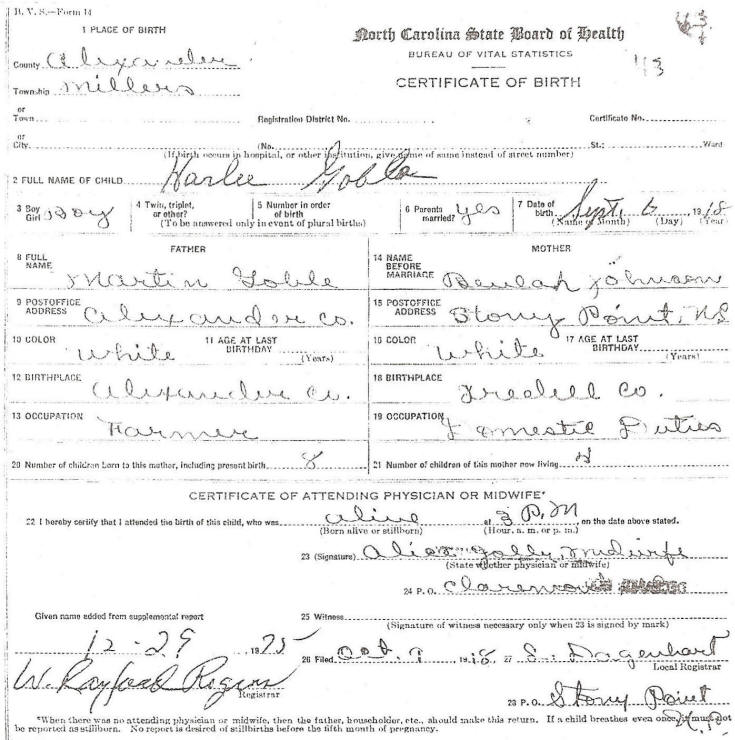 B. V. S.—Form 14
1 PLACE OF BIRTH
North Carolina State Board of Health
BUREAU OF VITAL STATISTICS
CERTIFICATE OF BIRTH
43
County Alexander
Township Millers
or
Town
Registration District No.
Certificate No.
or
City
(No.
St.;
Ward
(If birth occurs in hospital, or other institution, give name of same instead of street number)
2 FULL NAME OF CHILD Harlee Goble
3 Boy Girl Boy
4 Twin, triplet, or other?
5 Number in order of birth
(To be answered only in event of plural births)
6 Parents married? Yes
7 Date of birth Sept. 6, 1918
(Name of Month) (Day) (Year)
FATHER
MOTHER
8 FULL NAME Martin Goble
14 NAME BEFORE MARRIAGE Beulah Johnson
9 POSTOFFICE ADDRESS Alexander Co.
15 POSTOFFICE ADDRESS Stony Point, NC
10 COLOR White
11 AGE AT LAST BIRTHDAY (Years)
16 COLOR White
17 AGE AT LAST BIRTHDAY (Years)
12 BIRTHPLACE Alexander Co.
18 BIRTHPLACE Iredell Co.
13 OCCUPATION Farmer
19 OCCUPATION Domestic Duties
20 Number of children born to this mother, including present birth 8
21 Number of children of this mother now living
CERTIFICATE OF ATTENDING PHYSICIAN OR MIDWIFE*
22 I hereby certify that I attended the birth of this child, who was alive at 3 P.M, on the date above stated.
(Born alive or stillborn) (Hour, a. m. or p. m.)
23 (Signature) Alice Jolly, Midwife
(State whether physician or midwife)
24 P. O.
Given name added from supplemental report
25 Witness
(Signature of witness necessary only when 23 is signed by mark)
12-29 1975
26 Filed Oct. 9 1918 27 S. Dagenhart
Local Registrar
W. Rayford
Registrar
28 P. O. Stony Point
N.C.
*When there was no attending physician or midwife, then the father, householder, etc., should make this return. If a child breathes even once, it must not
be reported as stillborn. No report is desired of stillbirths before the fifth month of pregnancy.